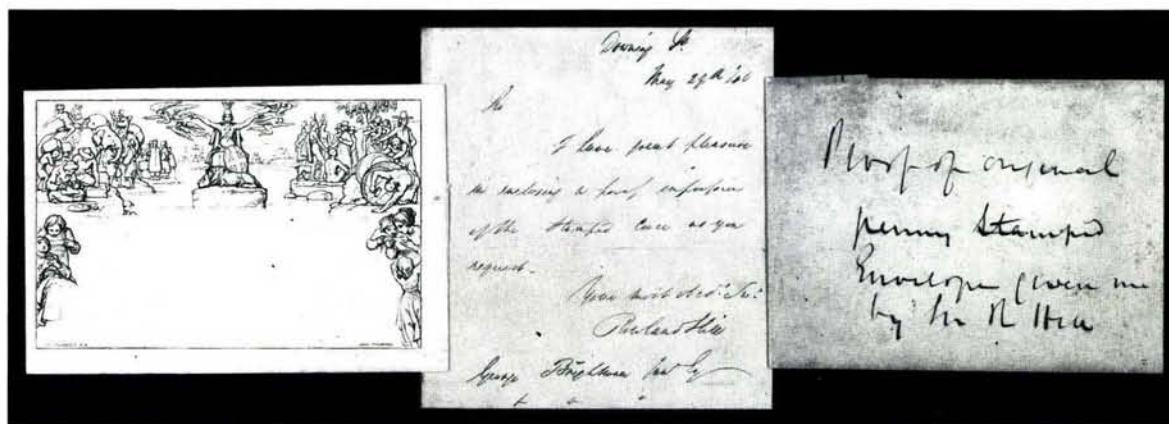 Downing St.
May 29th /40
Sir
I have great pleasure
in enclosing a proof impression
of the Stamped Cover as you
request.
Your most obedt. Sert.
Rowland Hill
George Brightman
Proof of original
penny Stamped
Envelope given me
by Sir R Hill